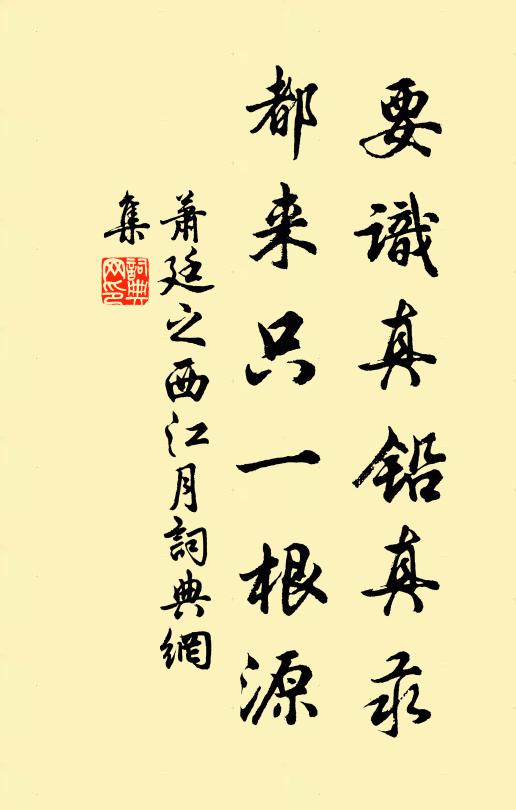 要識真鉛真汞
都来只一根源
蕭廷之西江月詞典網
集
詞典网印